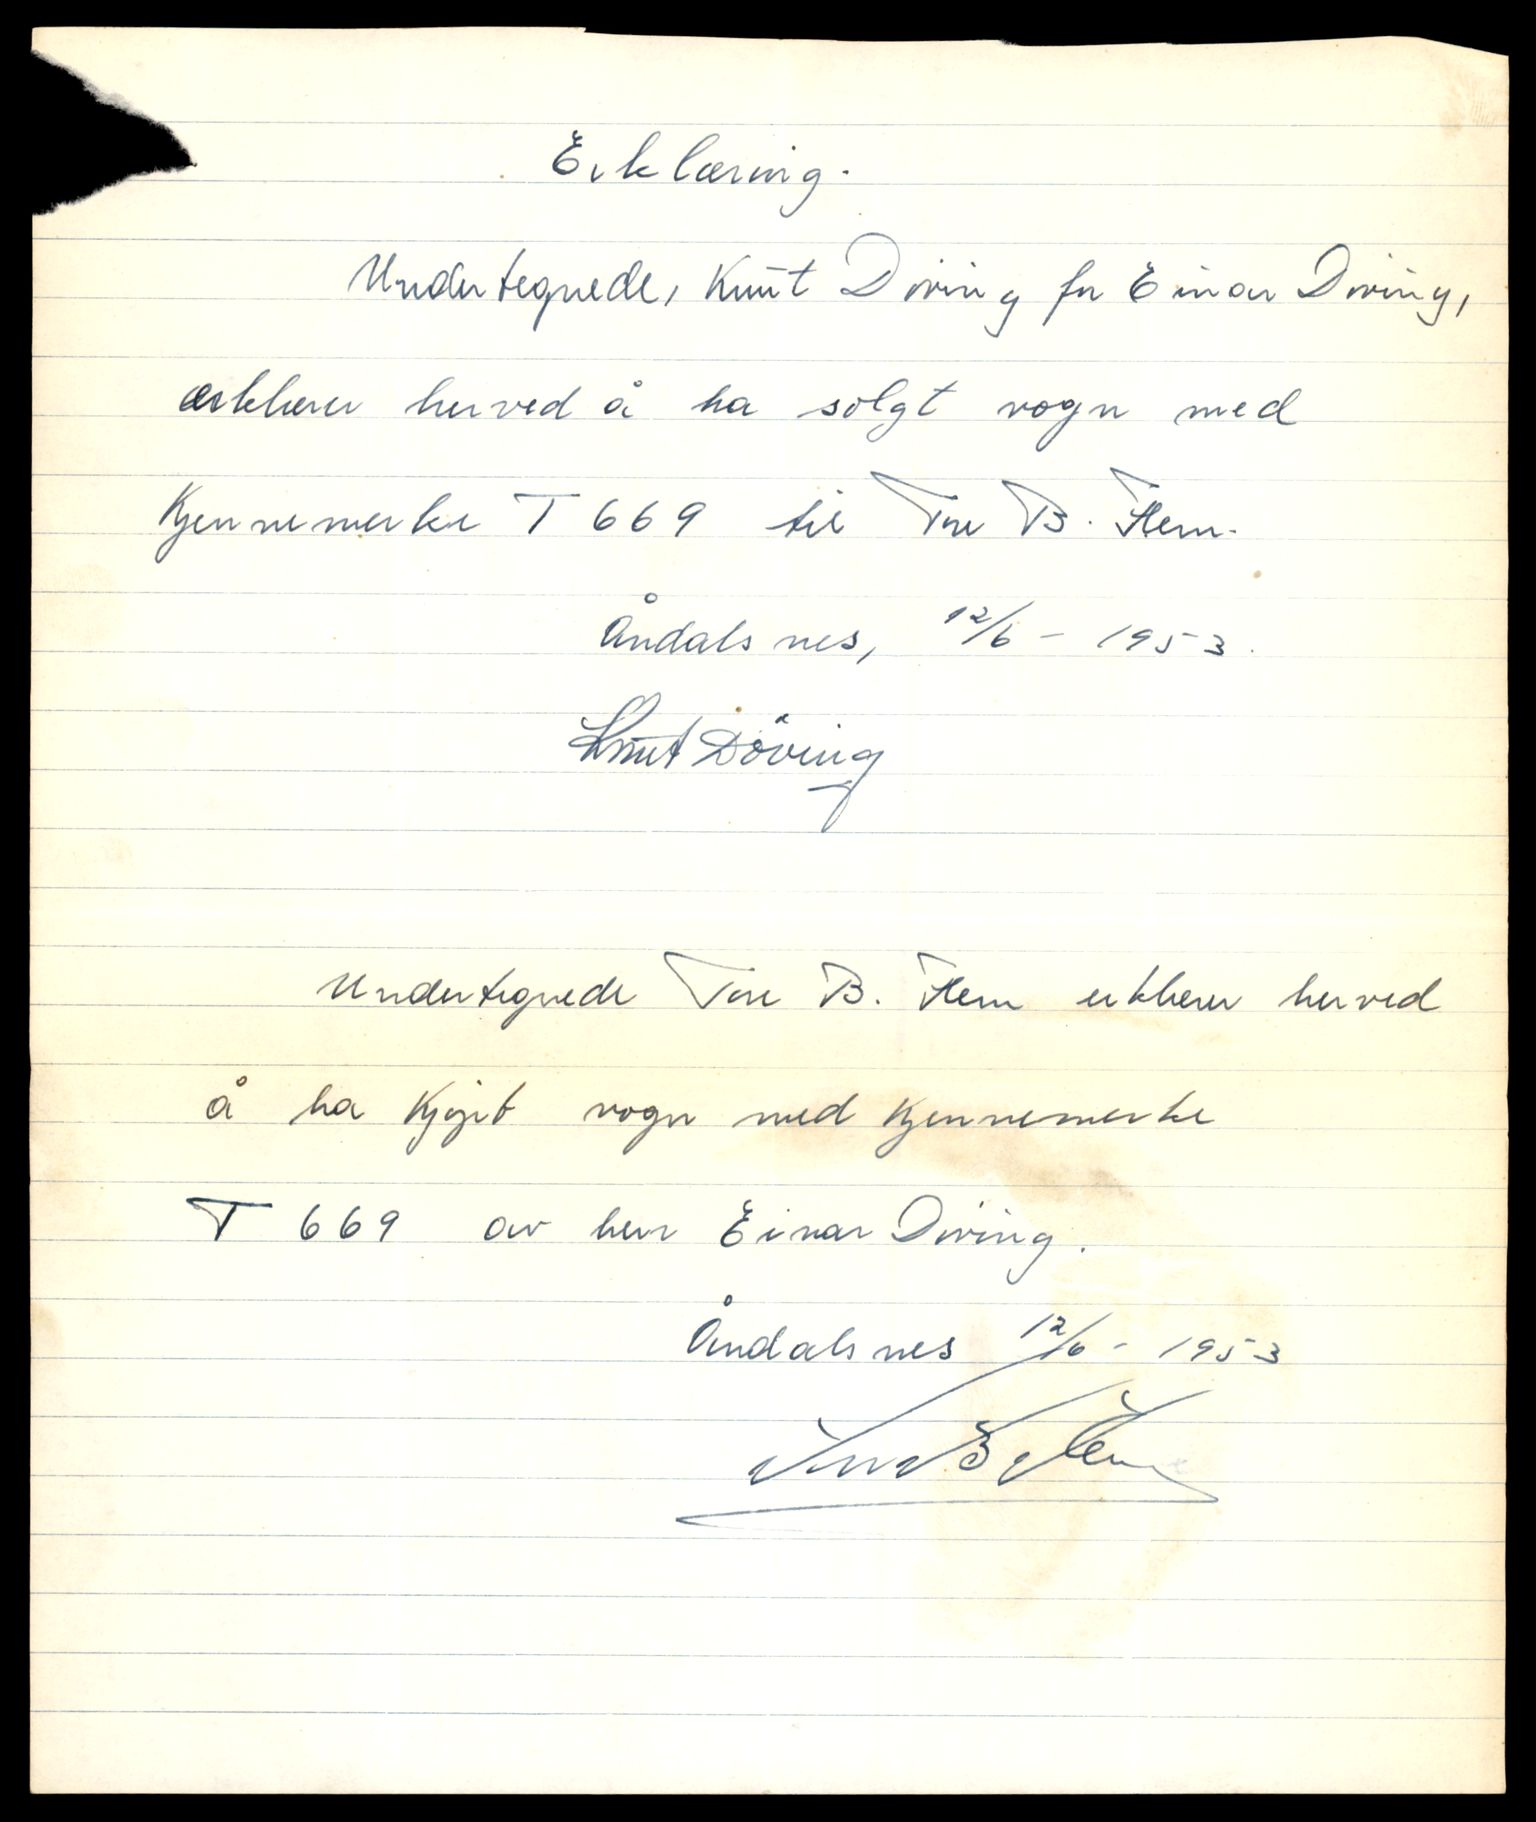 Erklæring.
Undertegnede, Knut Döving for Einar Döving,
erklærer herved å ha solgt vogn med
Kjennemerke T 669 til Tore B. Flem.
Åndalsnes, 12/6 - 1953.
Knut Döving
Undertegnede Tore B. Flem erklærer herved
å ha kjøpt vogn med kjennemerke
T 669 av herr Einar Döving.
Åndalsnes 12/6 - 1953
Tore B. Flem